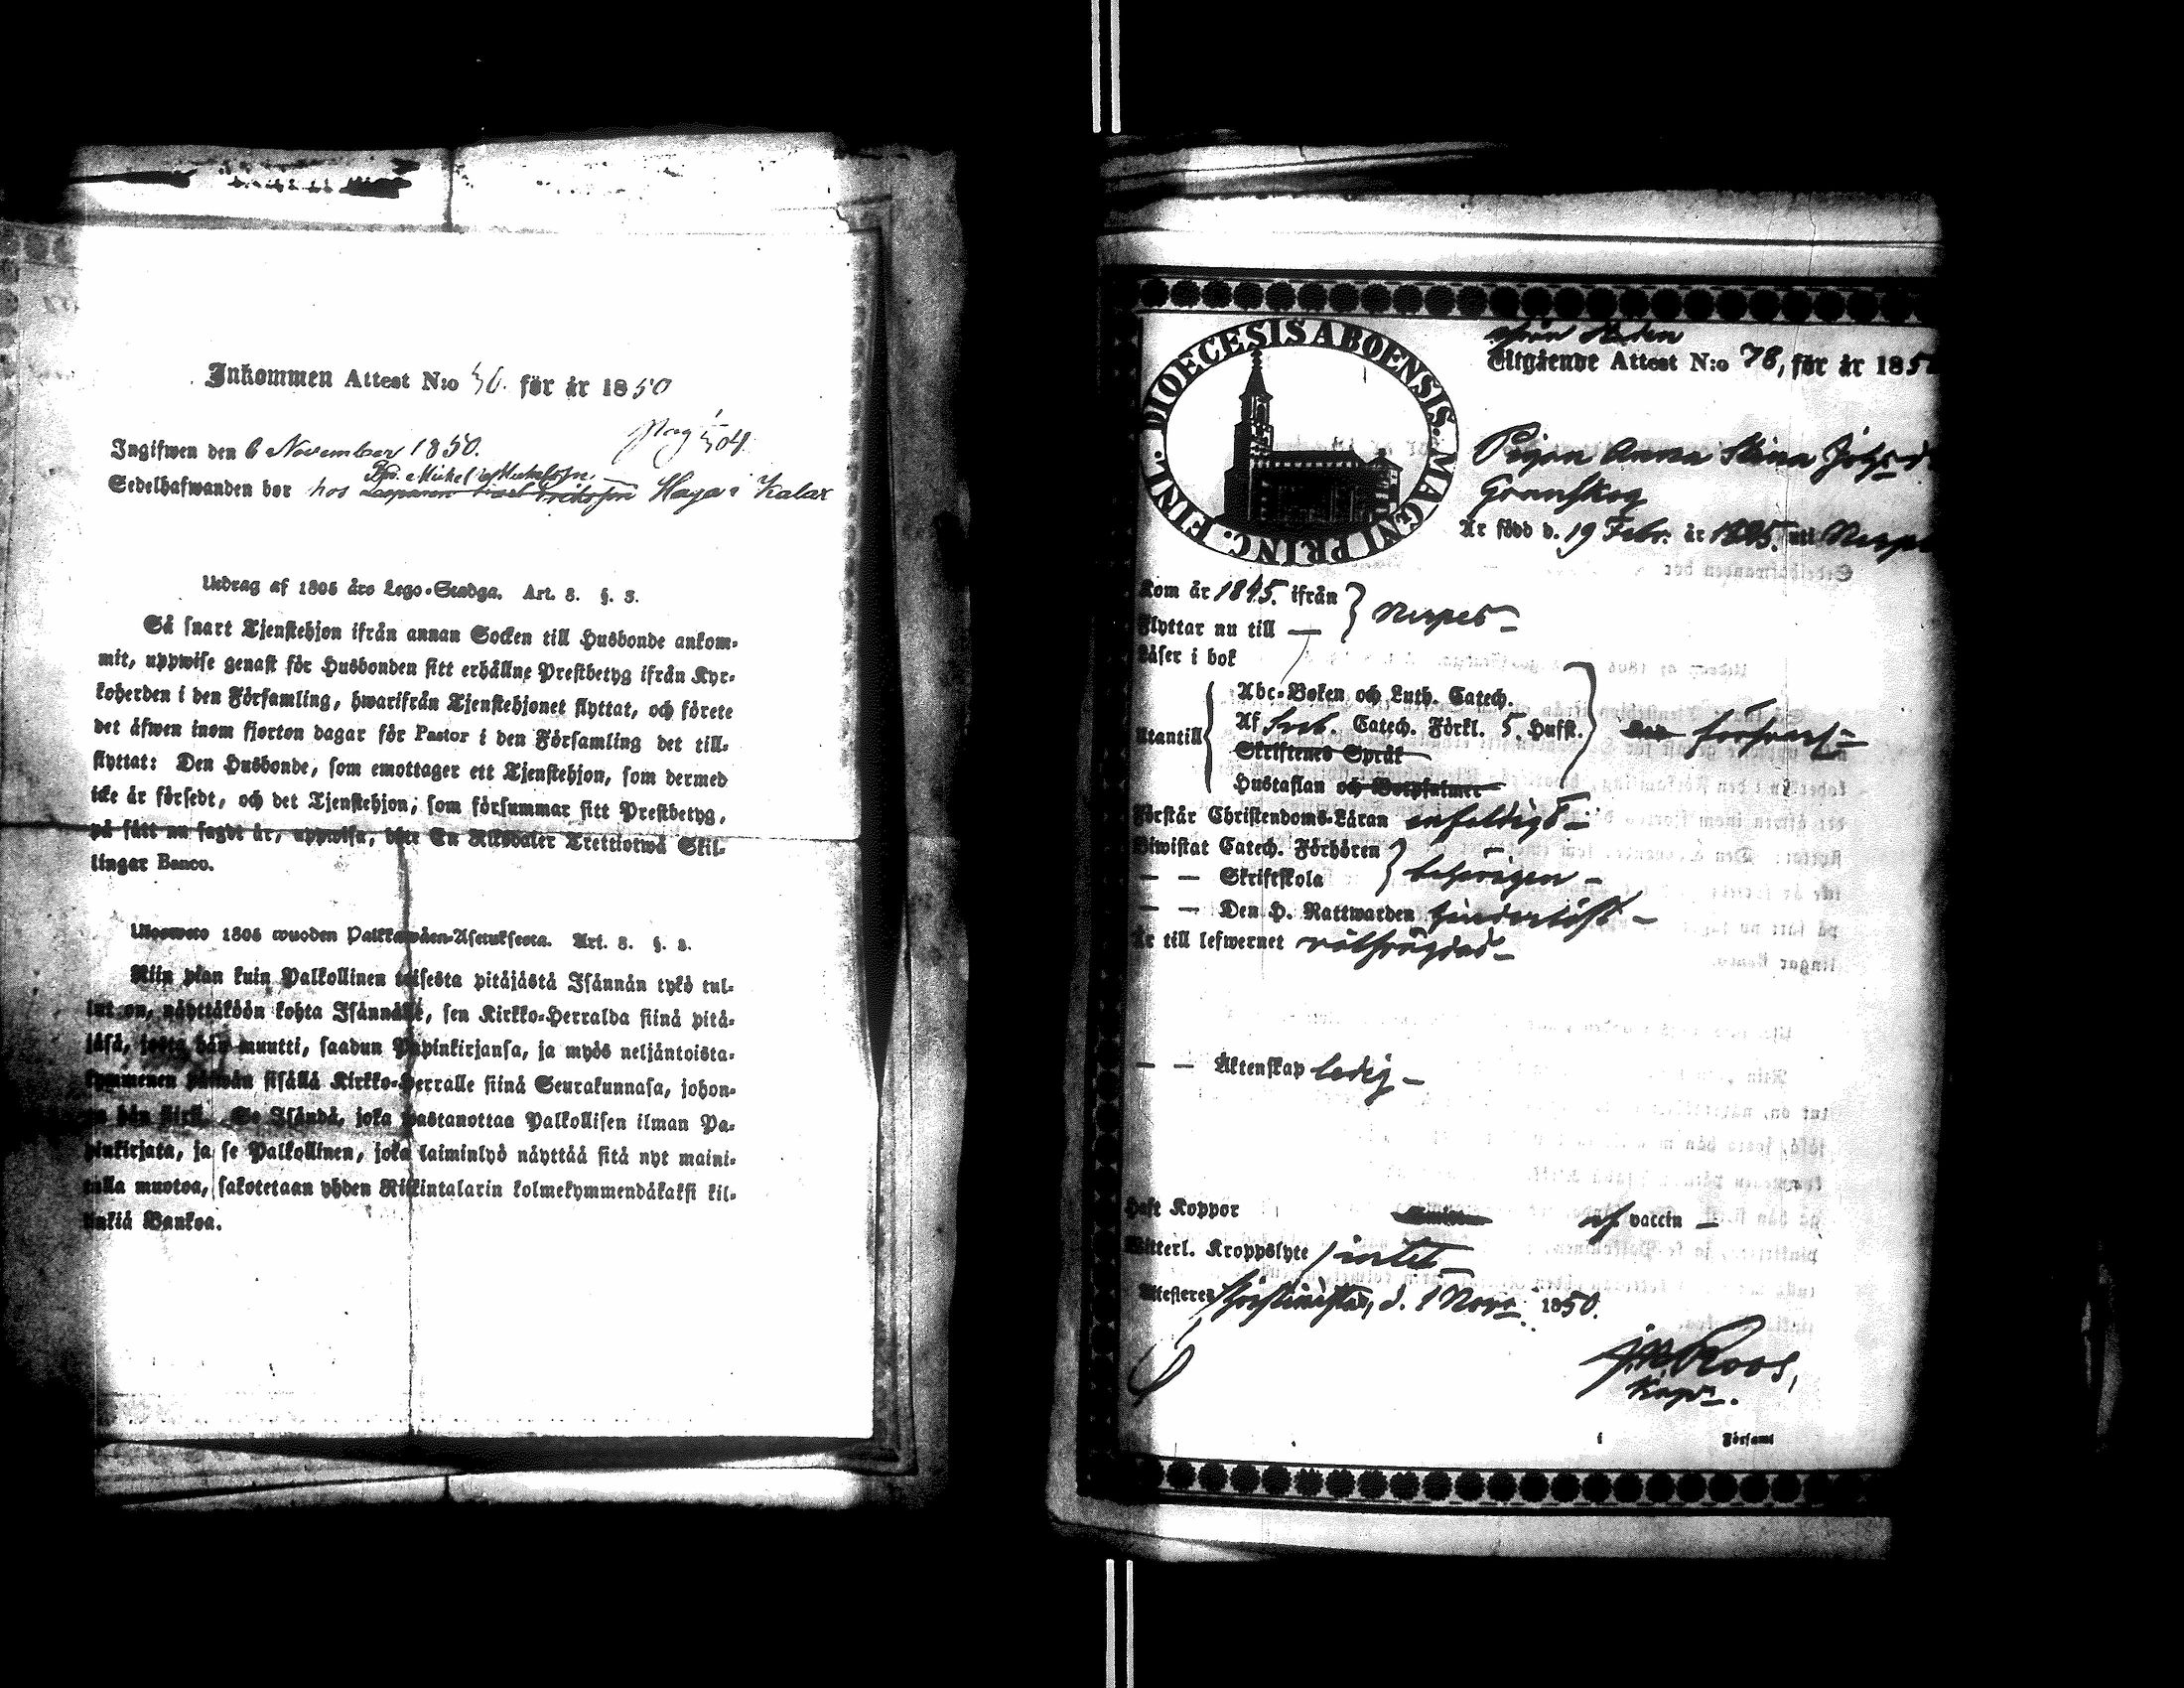 Inkommen Attest N:o för år 1850
Pag 504.
Ingifwen den 6 November 1850.
Bn. Mickel Mickelsson
Sedelhafwanden bor hos Haga i Kalax
Utdrag af 1805 års Lego-Stadga. Art. 3. §. 3.
Så snart Tjenstehjon ifrån annan Socken till Husbonde ankom-
mit, uppwise genast för Husbonden sitt erhållne Prestbetyg ifrån Kyr-
koherden i den Församling, hwarifrån Tjenstehjonet flyttat, och förete
det äfwen inom fjorton dagar för Pastor i den Församling det till-
flyttat: Den Husbonde, som emottager ett Tjenstehjon, som dermed
icke är försedt, och det Tjenstehjon, som försummar sitt Prestbetyg,
på sätt nu sagdt är, uppwisa, böte En Riksdaler Trettiotwå Skil-
lingar Banco.
Uloswato 1805 wuoden Palkkawäen-Asetuksesta. Art. 3. §. 3.
Niin pian kuin Palkollinen toisesta pitäjästä Isännän tykö tul-
lut on, näyttäköön kohta Isännälle, sen Kirkko-Herralda siinä pitä-
jäsä, josta hän muutti, saadun Papinkirjansa, ja myös neljäntoista-
kymmenen päiwän sisällä Kirkko-Herralle siinä Seurakunnasa, johon-
ga hän siirsi. Se Isändä, joka wastanottaa Palkollisen ilman Pa-
pinkirjata, ja se Palkollinen, joka laiminlyö näyttää sitä nyt maini-
tulla muotoa, sakotetaan yhden Riikintalarin kolmekymmendäkaksi kil-
linkiä Bankoa.
DIOECESIS ABOENSIS. MAGNI PRINC. FINL.
från Staden
Utgående Attest N:o 78, för år 185
Pigan Anna Stina Johsd
Granskog
Är född d. 19 Febr. år 1825. uti Nerpe
Kom år 1845. ifrån
Flyttar nu till — Nerpes —
Läser i bok
Abc-Boken och Luth. Catech.
Utantill Af Sveb. Catech. Förkl. 5. Hufst. försvarl —
Skriftenes Språk
Hustaflan och Botpsalmer
Förstår Christendoms-Läran enfaldigt —
Biwistat Catech. Förhören
— — Skriftskola behörigen —
— — Den H. Nattwarden
Är till lefwernet
— — Äktenskap ledig —
Haft Koppor af vaccin —
Witterl. Kroppslyte intet —
Attesteres Christinestad, d. 1 Nov. 1850.
J. M. Roos,
Kapn.
i Församl